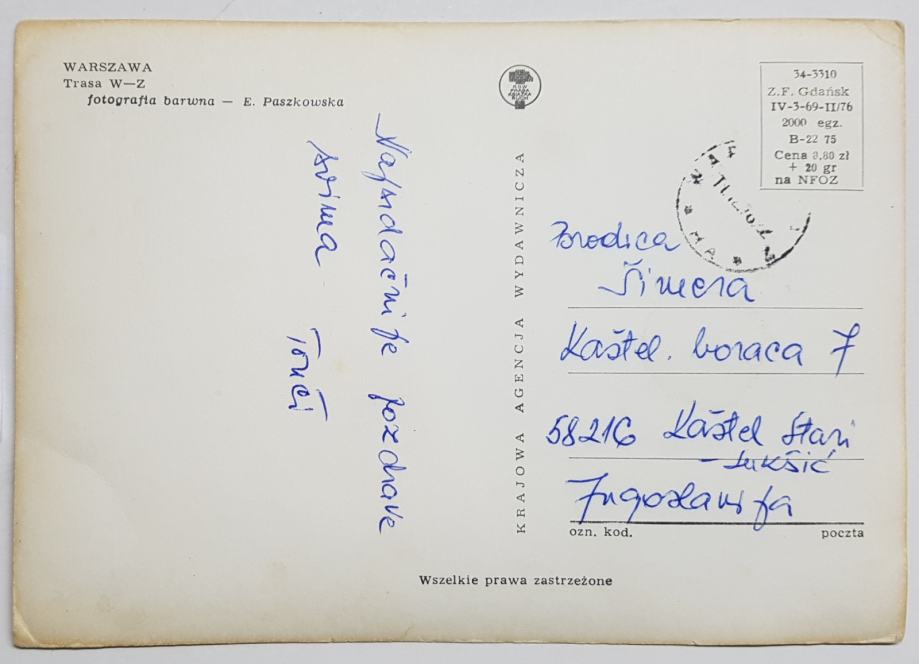 WARSZAWA
Trasa W—Z
fotografia barwna — E. Paszkowska
Najsrdačnije pozdrave
svima
Tonči
KRAJOWA AGENCJA WYDAWNICZA
34-3310
Z.F. Gdańsk
IV-3-69-II/76
2000 egz.
B-22 75
Cena 0,80 zł
+ 20 gr
na NFOZ
Šimera
Kaštel. boraca 7
58216 Kaštel Stari
- Lukšić
Jugoslavija
ozn. kod. poczta
Wszelkie prawa zastrzeżone